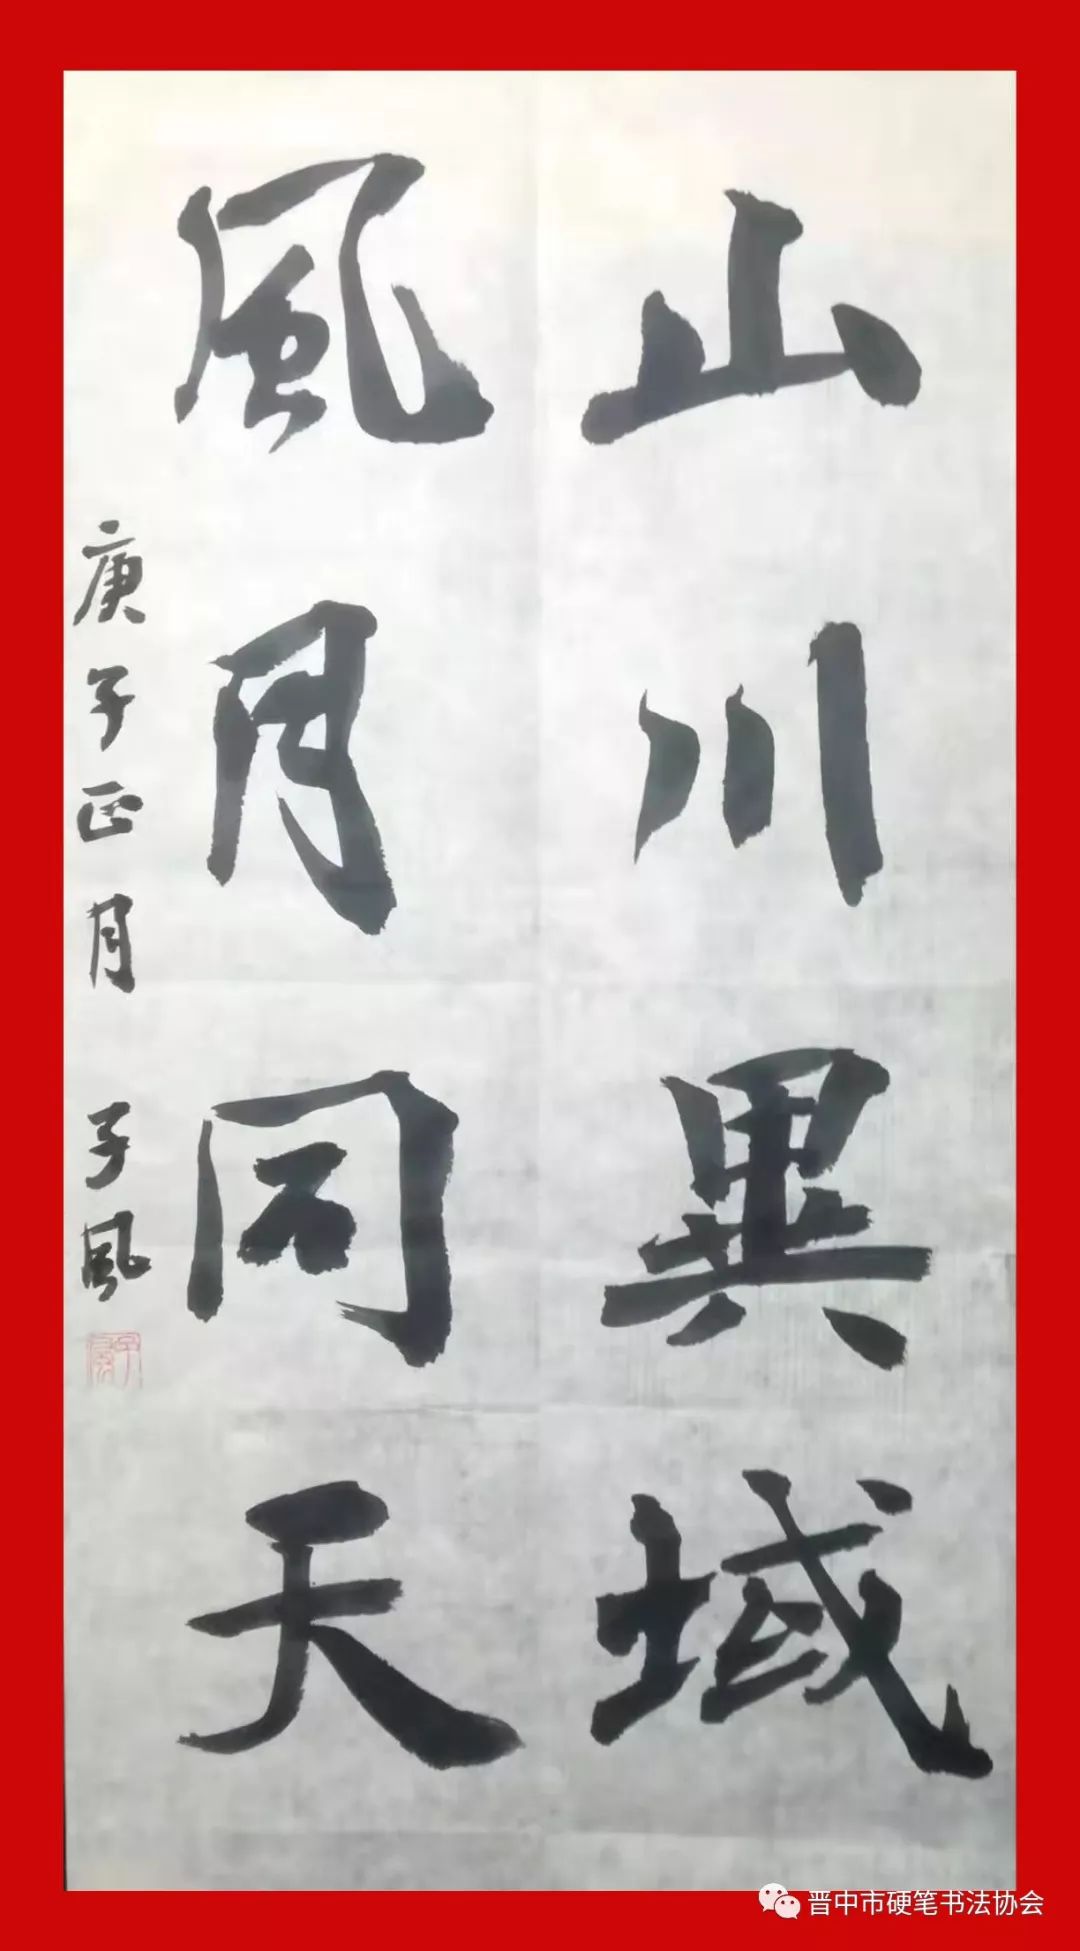 山川異域
風月同天
庚子正月 子风
晋中市硬笔书法协会